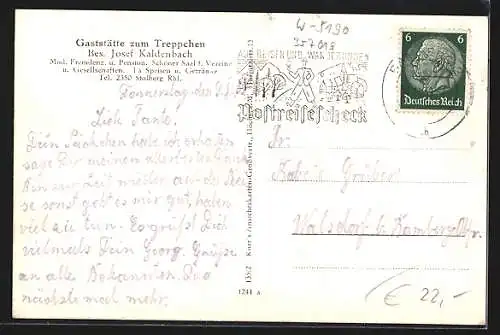 Gaststätte zum Treppchen
Bes. Josef Kaldenbach
Mod. Fremdenz. u. Pension. Schöner Saal f. Vereine
u. Gesellschaften. Ia Speisen u. Getränke
Tel. 2350 Stolberg Rhl.
Donnerstag den
Lieb Tante.
Dein Päckchen habe ich erhalten
sage Dir meinen allerbesten
Bin zur Zeit wieder auf der Rei
se sonst geht es mir gut, haben
viel zu tun. Es grüßt Dich
vielmals Dein Georg. Grüße
an alle Bekannten. Das
nächste mal mehr.
W-5190
357018
AUF REISEN UND WANDERUNGEN
Postreisescheck
6 6
Deutsches Reich
b
Gruber
Walsdorf b/Bamberg
€ 22,-
13562
1241 A